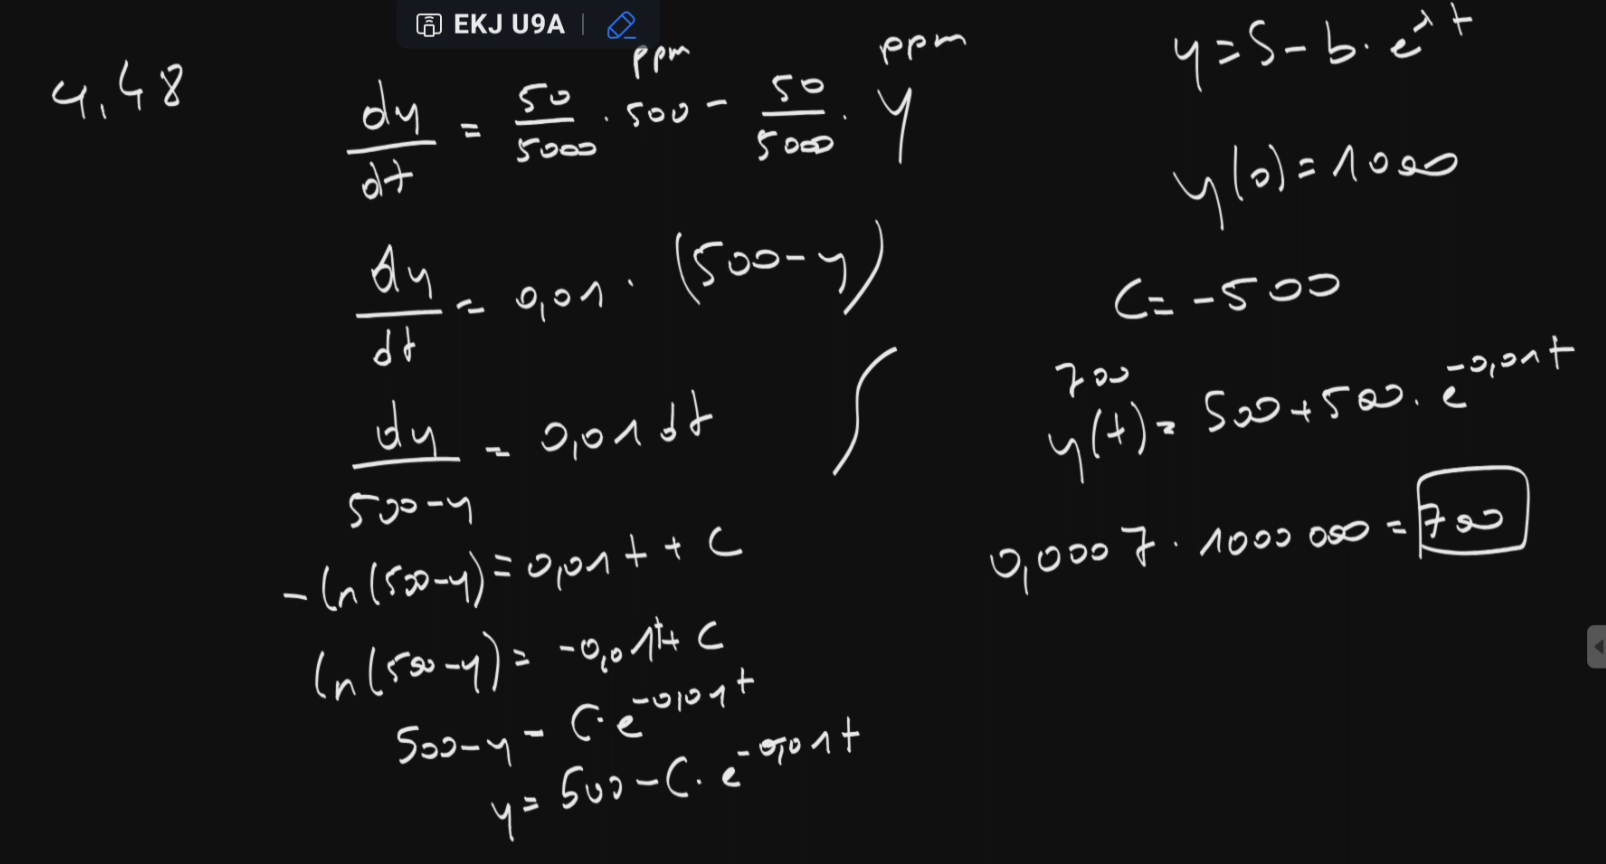 EKJ U9A
4.48
dy/dt = 50/5000 · 500 ppm - 50/5000 · y ppm
dy/dt = 0,01 · (500-y)
dy/(500-y) = 0,01 dt ∫
-ln(500-y) = 0,01t + C
ln(500-y) = -0,01t + C
500-y = C·e^(-0,01t)
y = 500 - C·e^(-0,01t)
y = S - b·e^(λt)
y(0) = 1000
C = -500
700
y(t) = 500 + 500·e^(-0,01t)
0,0007 · 1000 000 = 700